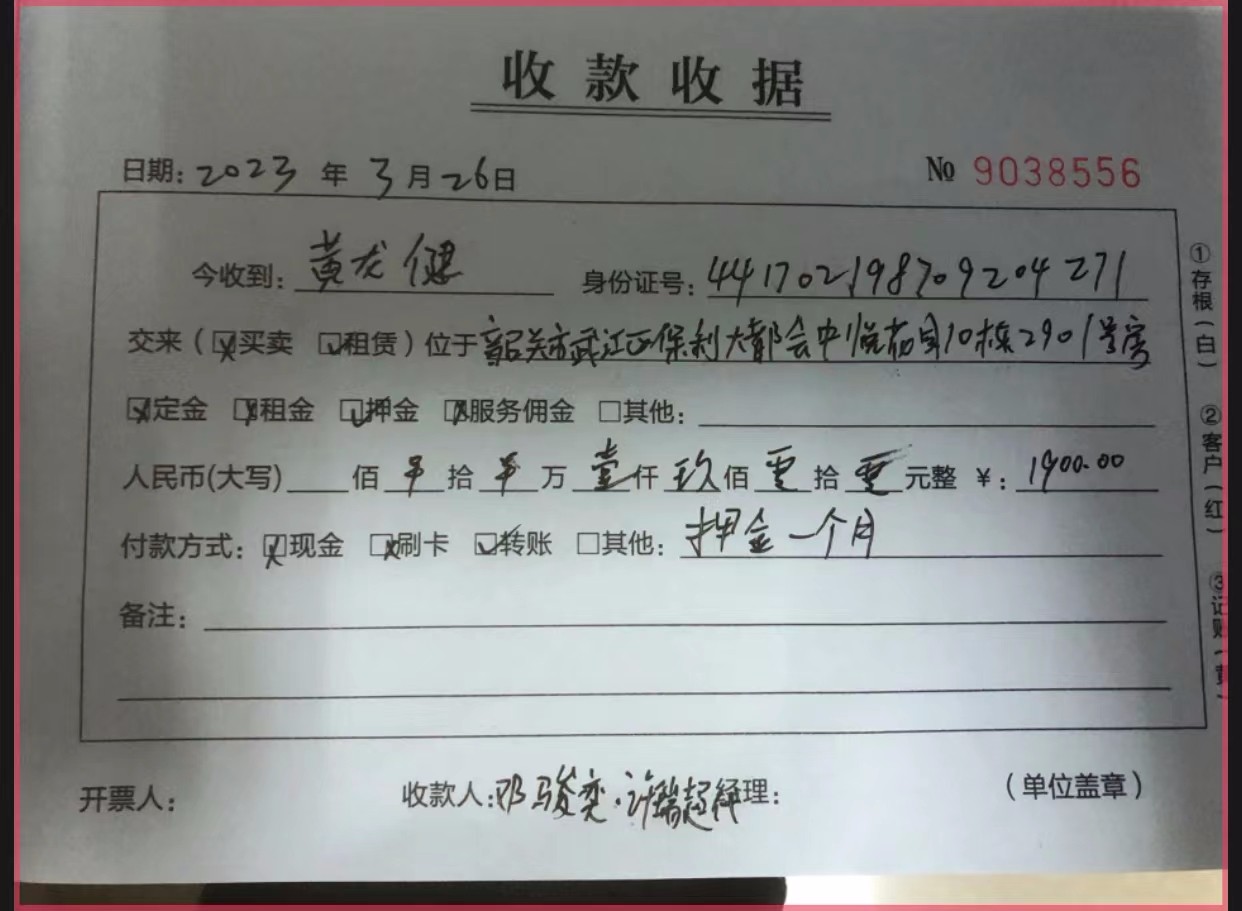 收款收据
日期: 2023 年 3 月 26 日 № 9038556
今收到: 黄龙健 身份证号: 441702198709204271
交来 ( ☒买卖 ☑租赁 ) 位于 韶关市武江区保利大都会中悦花园10栋2901号房
☒定金 ☒租金 ☑押金 ☒服务佣金 □其他:
人民币(大写) 佰 拾 万 壹 仟 玖 佰 零 拾 零 元整 ¥: 1900.00
付款方式: ☒现金 ☒刷卡 ☑转账 □其他: 押金一个月
备注:
开票人: 收款人: 邓骏奕. 许瑞超 经理: (单位盖章)
①存根(白)
②客户(红)
③记账(黄)